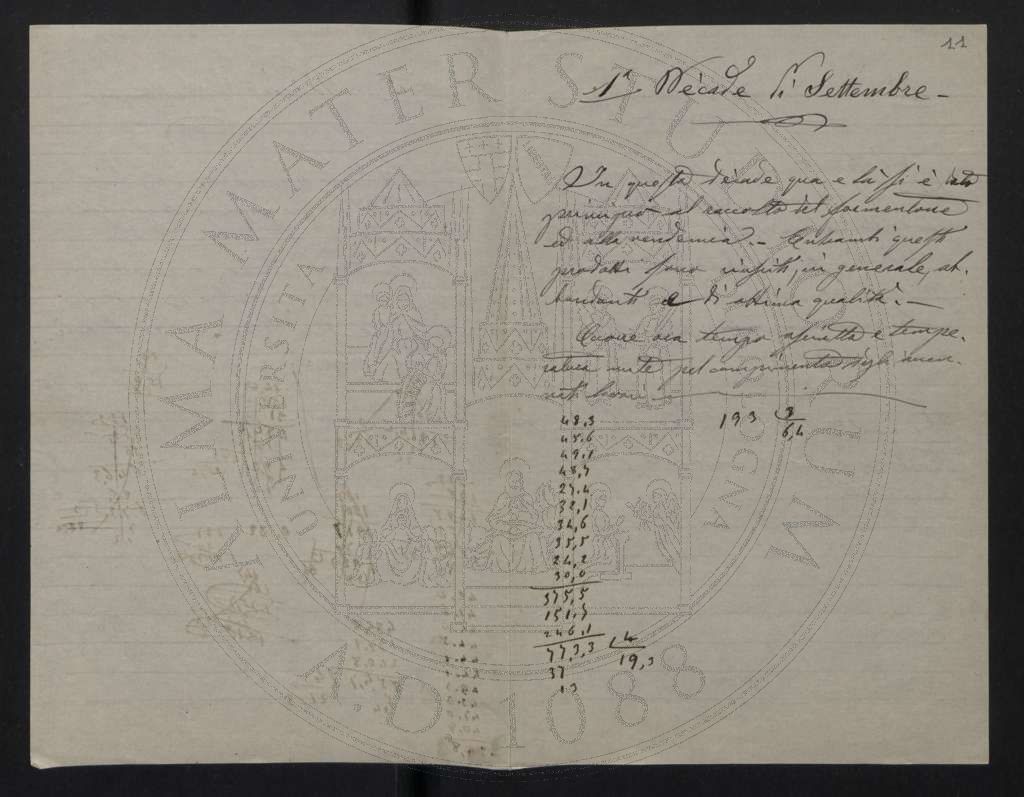 11
1ª Decade di Settembre -
In questa decade qua e là si è dato
principio al raccolto del formentone
ed alla vendemia. - Entrambi questi
prodotti sono riusciti, in generale, ab-
bondanti e di ottima qualità. -
Occorre ora tempo asciutto e tempe-
ratura mite pel compimento degli accen-
nati lavori
48,3
193 3
45,6
6,4
49,1
48,7
27,4
32,1
34,6
35,5
24,2
30,0
375,5
151,7
246,1
77,3,3 4
19,3
37
13
ALMA MATER STUDIORUM
UNIVERSITÀ
BOLOGNA
A.D. 1088